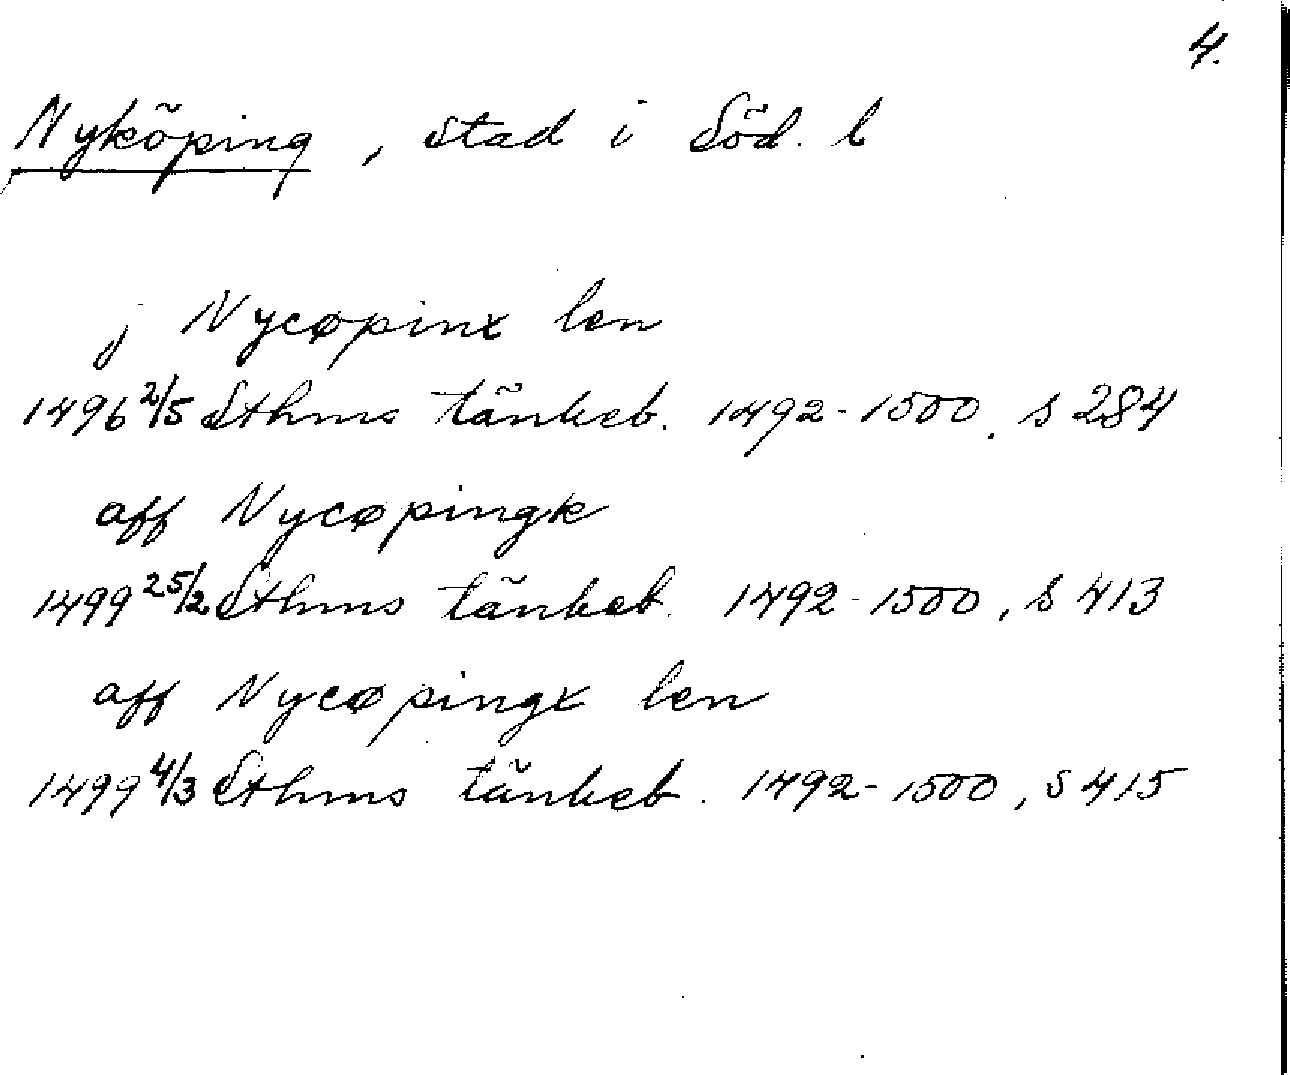 4.
Nyköping, stad i Söd. l
j Nycøpinx len
1496 2/5 Sthms tänkeb. 1492-1500. s 284
aff Nycøpingk
1499 25/2 Sthms tänkeb. 1492-1500, s 413
aff Nycøpingx len
1499 4/3 Sthms tänkeb. 1492-1500, s 415